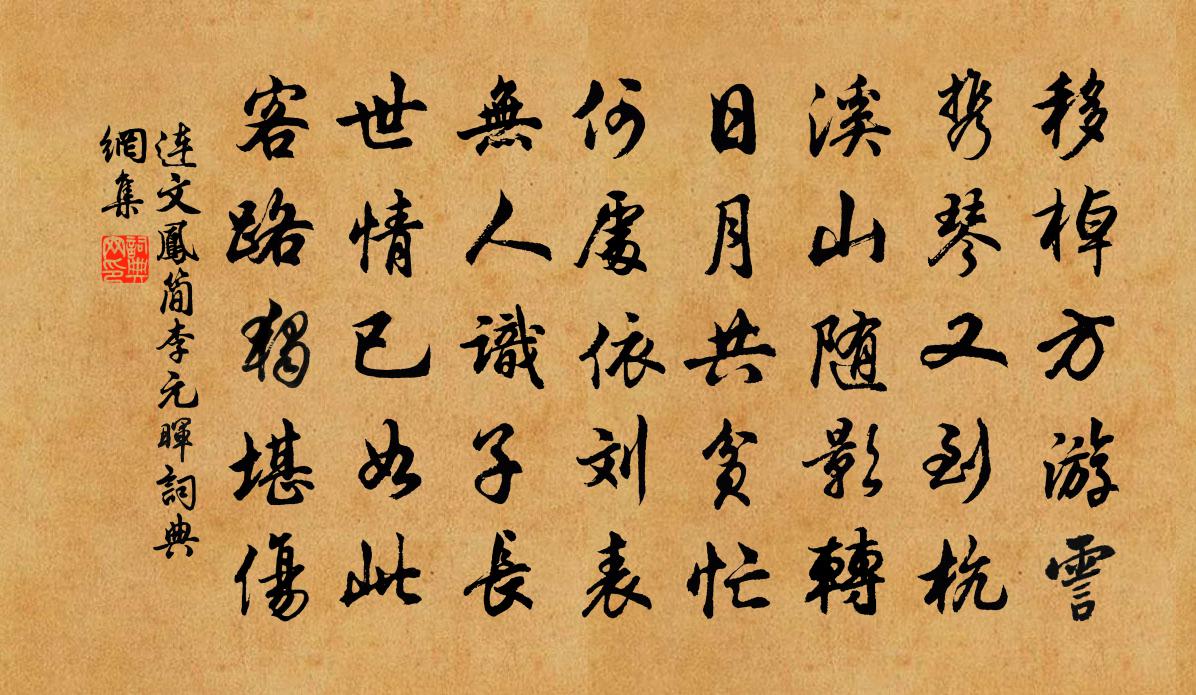 移棹方游霅
携琴又到杭
溪山随影轉
日月共貧忙
何處依刘表
無人識子長
世情已如此
客路獨堪傷
連文鳳简李元暉詞典
網集
詞典
网印